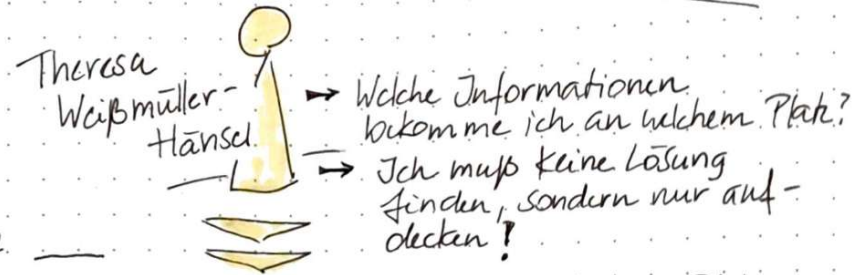 Theresa
Weißmüller-
Hänsel
→ Welche Informationen
bekomme ich an welchem Platz?
→ Ich muß keine Lösung
finden, sondern nur auf-
decken!